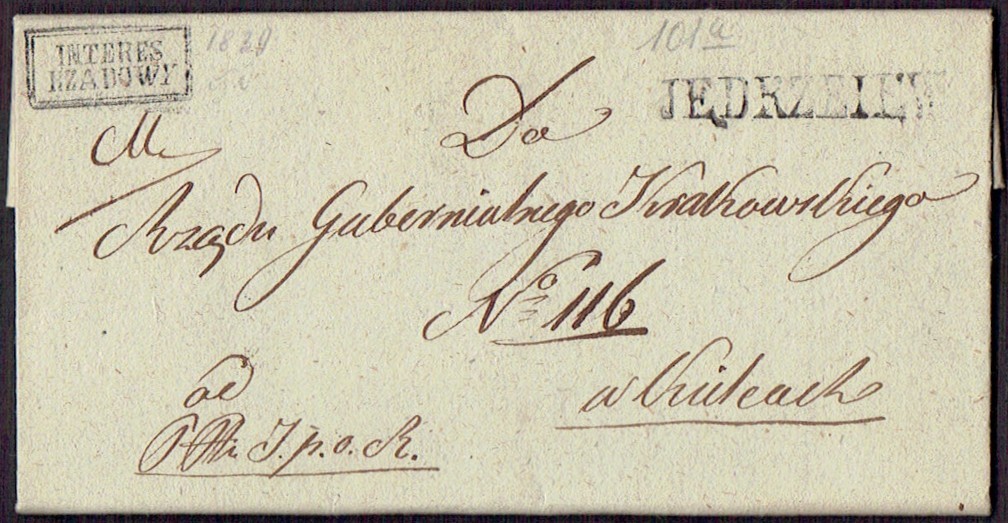 INTERES
RZĄDOWY
101a
JĘDRZEIEW
Do
Rządu Gubernialnego Krakowskiego
No 116
w Kielcach
od
I.p.o.K.